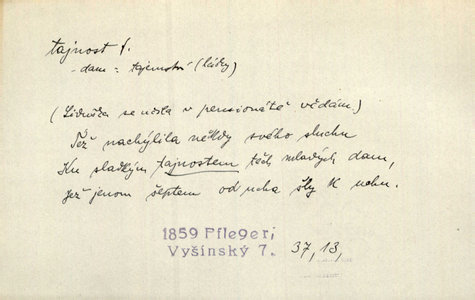 tajnost f.
- dam = tajemství (lásky)
(Liduška se učila v pensionátě vědám.)
Též nachýlila někdy svého sluchu
Ku sladkým tajnostem těch mladých dam,
jež jenom šeptem od ucha šly k uchu.
1859 Pfleger,
Vyšínský 7. 37,13,